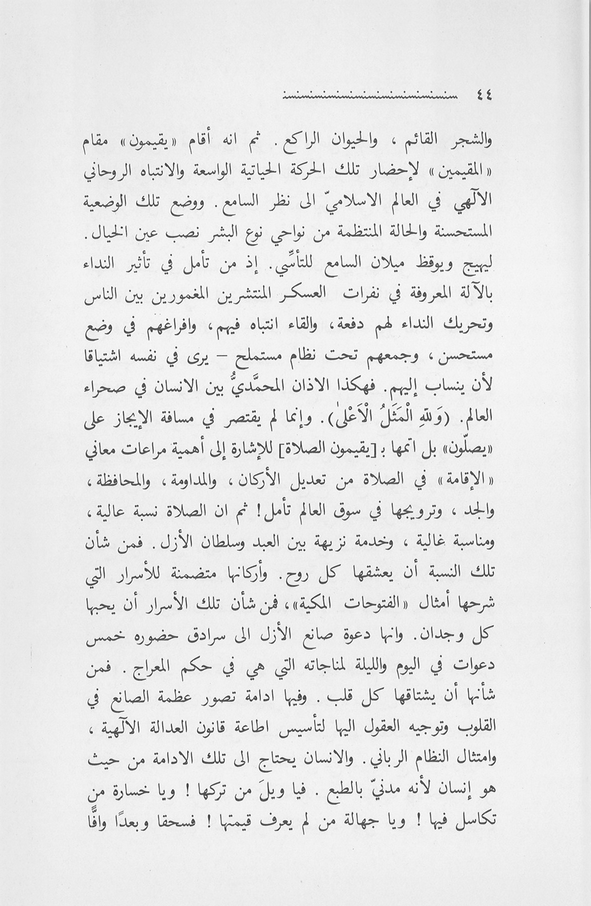 ٤٤
والشجر القائم ، والحيوان الراكع . ثم انه أقام «يقيمون» مقام
«المقيمين» لإحضار تلك الحركة الحياتية الواسعة والانتباه الروحاني
الآلهي في العالم الاسلاميّ الى نظر السامع . ووضع تلك الوضعية
المستحسنة والحالة المنتظمة من نواحي نوع البشر نصب عين الخيال .
ليهيج ويوقظ ميلان السامع للتأسِّي . إذ من تأمل في تأثير النداء
بالآلة المعروفة في نفرات العسكر المنتشرين المغمورين بين الناس
وتحريك النداء لهم دفعة، والقاء انتباه فيهم، وافراغهم في وضع
مستحسن ، وجمعهم تحت نظام مستملح – يرى في نفسه اشتياقا
لأن ينساب إليهم . فهكذا الاذان المحمَّديُّ بين الانسان في صحراء
العالم . (وَللهِ الْمَثَلُ الْاَعْلىٰ). وإنما لم يقتصر في مسافة الإيجاز على
«يصلّون» بل اتمها بـ [يقيمون الصلاة] للإشارة إلى أهمية مراعات معاني
«الإقامة» في الصلاة من تعديل الأركان ، والمداومة ، والمحافظة ،
والجد ، وترويجها في سوق العالم تأمل ! ثم ان الصلاة نسبة عالية ،
ومناسبة غالية ، وخدمة نزيهة بين العبد وسلطان الأزل . فمن شأن
تلك النسبة أن يعشقها كل روح . وأركانها متضمنة للأسرار التي
شرحها أمثال «الفتوحات المكية»، فمن شأن تلك الأسرار أن يحبها
كل وجدان . وانها دعوة صانع الأزل الى سرادق حضوره خمس
دعوات في اليوم والليلة لمناجاته التي هي في حكم المعراج . فمن
شأنها أن يشتاقها كل قلب . وفيها ادامة تصور عظمة الصانع في
القلوب وتوجيه العقول اليها لتأسيس اطاعة قانون العدالة الآلهية ،
وامتثال النظام الرباني . والانسان يحتاج الى تلك الادامة من حيث
هو إنسان لأنه مدنيّ بالطبع . فيا ويلَ من تركها ! ويا خسارة من
تكاسل فيها ! ويا جهالة من لم يعرف قيمتها ! فسحقا وبعدًا وافًّا